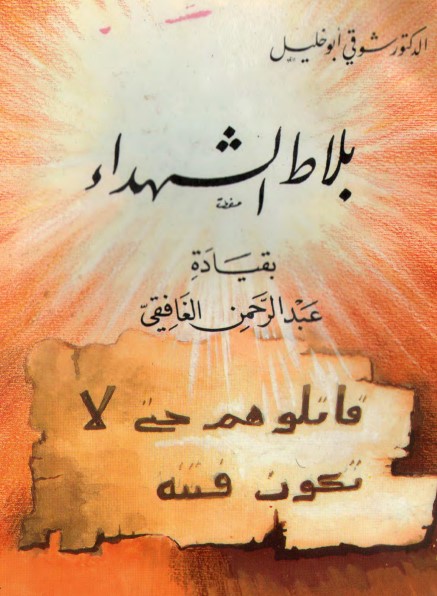 الدكتور شوقي أبو خليل
بلاط الشهداء
بقيَادَةِ
عَبْد الرَّحمن الغَافِقيّ
قاتلوهم حتى لا
تكون فتنه